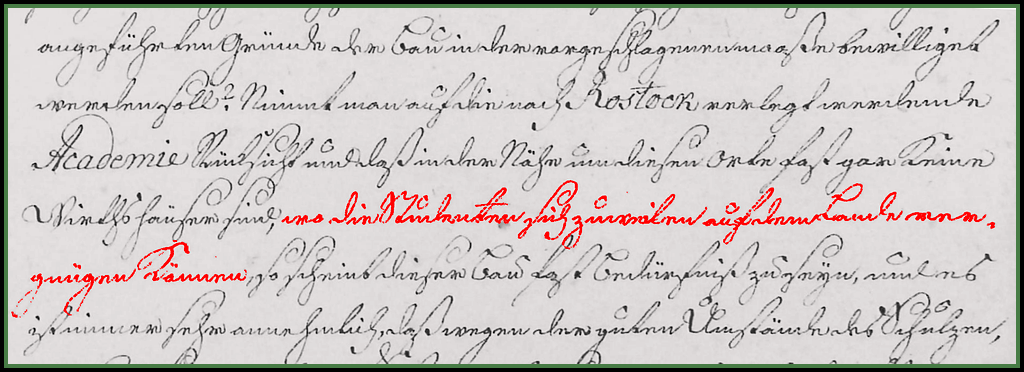 angeführten Gründe der Bau in der vorgeschlagenen maaße bewilliget
werden soll? Nimmt man auf die nach Rostock verlegt werdende
Academie Rücksicht und daß in der Nähe um diesen Orte fast gar keine
Wirthshäuser sind, wo die Studenten sich zuweilen auf dem Lande ver-
gnügen können, so scheint dieser Bau fast Bedürfniß zu seyn, und es
ist immer sehr annehmlich, daß wegen der guten Umstände des Schulzen,